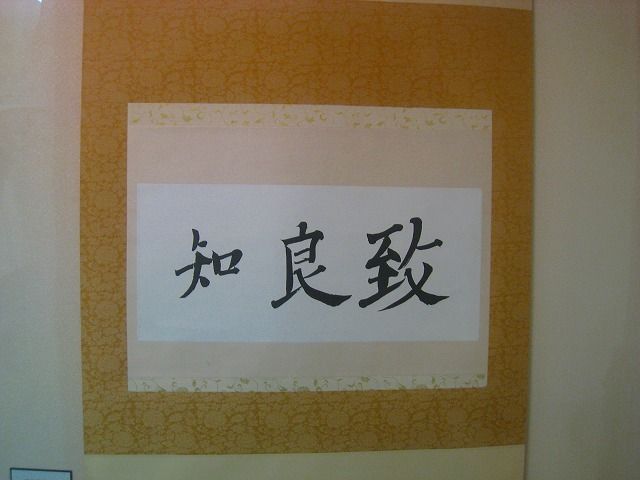 致良知